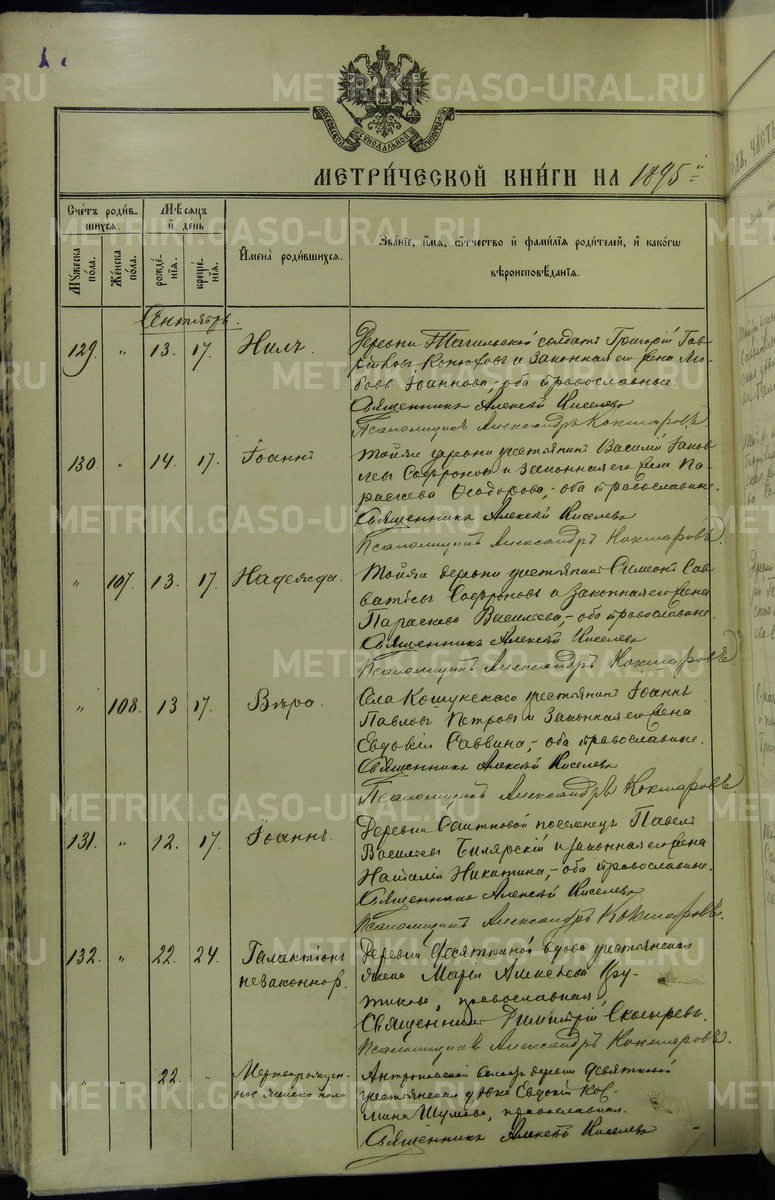 МЕТРИ́ЧЕСКОЙ КНИ́ГИ НА 1895 й
Сче́тъ роди́в-
шихся.
Му́жеска по́ла.
Же́нска по́ла.
Мѣ́сяцъ
и҆ день
рожде́-
нїя.
креще́-
нїя.
И҆мена̀ роди́вшихся.
Зва́нїе, и҆́мя, ѻ҆́тчество и҆ фами́лїя роди́телей, и҆ како́гѡ
вѣроисповѣ́данїя.
Сентябрь.
129. " 13. 17. Нилъ.
Деревни Тагильской солдатъ Григорій Гав-
риловъ Конюховъ и законная его жена Лю-
бовь Іоаннова,- оба православные.
Священникъ Алексѣй Киселевъ
Псаломщикъ Александръ Кокшаровъ.
130. " 14. 17. Іоаннъ
деревни крестьянинъ Василій Яков-
левъ Софроновъ и законная его жена Па-
раскева Ѳеодорова,- оба православные.
Священникъ Алексѣй Киселевъ
Псаломщикъ Александръ Кокшаровъ.
" 107. 13. 17. Надежда.
деревни крестьянинъ Симеонъ Сав-
ватіевъ Софроновъ и законная его жена
Параскева Васильева,- оба православные.
Священникъ Алексѣй Киселевъ
Псаломщикъ Александръ Кокшаровъ
" 108. 13 17. Вѣра.
Села Кошукскаго крестьянинъ Іоаннъ
Павловъ Петровъ и законная его жена
Евдокія Саввина,- оба православные.
Священникъ Алексѣй Киселевъ
Псаломщикъ Александръ Кокшаровъ
131. " 12. 17. Іоаннъ.
Деревни поселенецъ Павелъ
Васильевъ Билярскій и законная его жена
Наталія Никитина,- оба православные.
Священникъ Алексѣй Киселевъ
Псаломщикъ Александръ Кокшаровъ.
132. " 22. 24. Галактіонъ
незаконнор.
Деревни Десяткиной вдова крестьянская
жена Марія Алексѣева
православная
Священникъ Димитрій Скосыревъ.
Псаломщикъ Александръ Кокшаровъ.
" " 22. " Мертворожден-
ное женска пола
волости деревни Девяткиной
крестьянская дѣвка Евдокія Коз-
мина Шумкова, православная.
Священникъ Алексѣй Киселевъ
METRIKI.GASO-URAL.RU